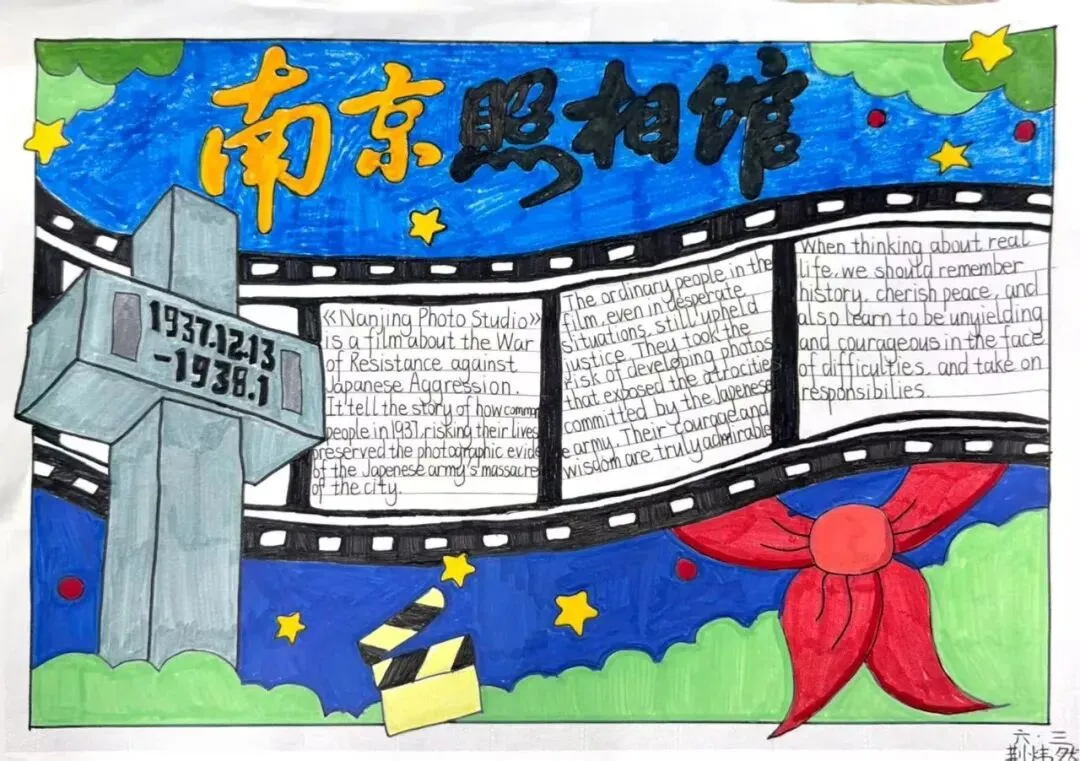 南京照相馆
1937.12.13
-1938.1
《Nanjing Photo Studio》
is a film about the War
of Resistance against
Japanese Aggression.
It tell the story of how common
people in 1937, risking their lives,
preserved the photographic evide
of the Japenese army's massacre
of the city.
The ordinary people in the
film, even in desperate
situations, still upheld
justice. They took the
risk of developing photos
that exposed the atrocities
committed by the Japenese
army. Their courage and
wisdom are truly admirable
When thinking about real
life, we should remember
history, cherish peace, and
also learn to be unyielding
and courageous in the face
of difficulties, and take on
responsibilies.
六·三
荆炜然